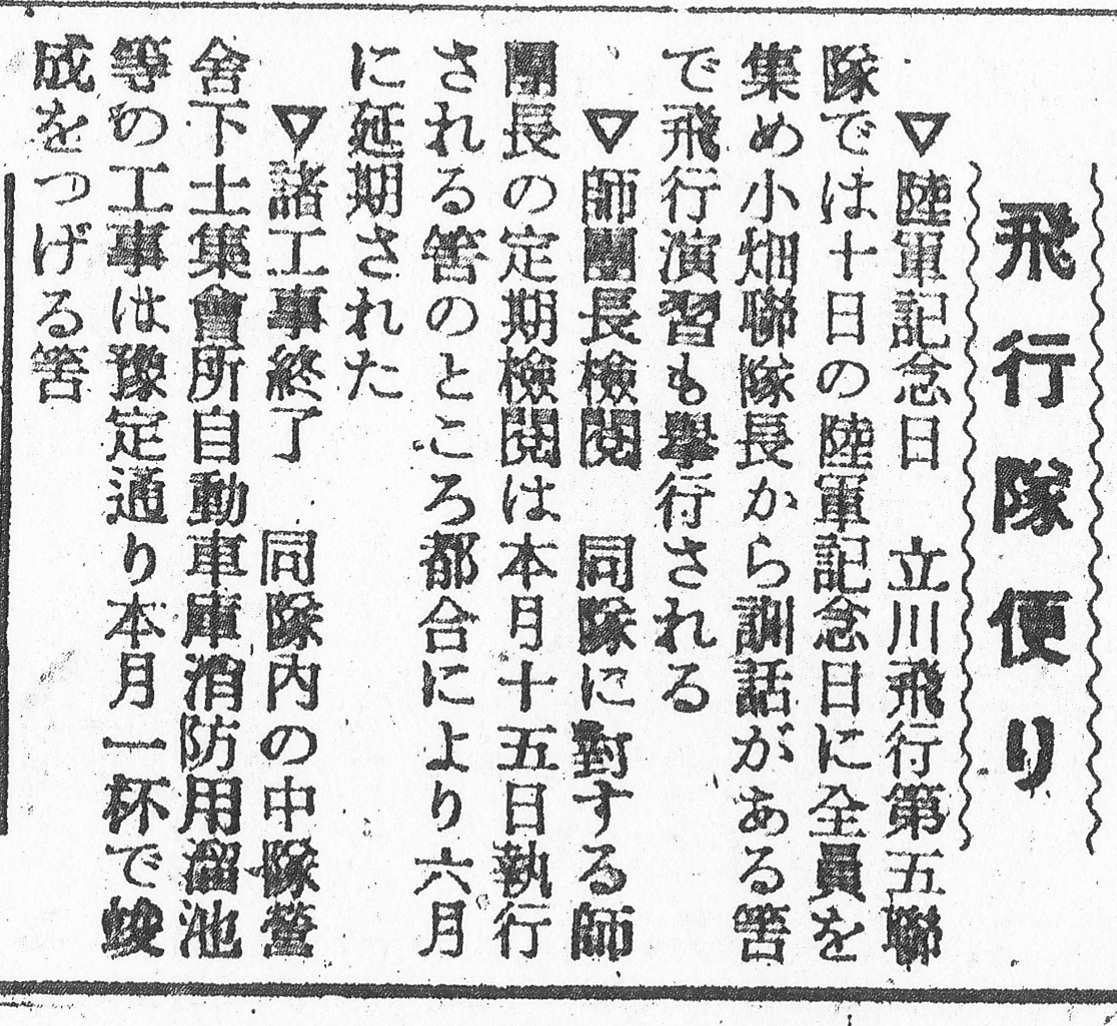 飛行隊便り
▽陸軍記念日　立川飛行第五聯
隊では十日の陸軍記念日に全員を
集め小畑聯隊長から訓話がある筈
で飛行演習も擧行される
▽師團長檢閲　同隊に對する師
團長の定期檢閲は本月十五日執行
される筈のところ都合により六月
に延期された
▽諸工事終了　同隊内の中隊營
舍下士集會所自動車庫消防用溜池
等の工事は豫定通り本月一杯で竣
成をつげる筈